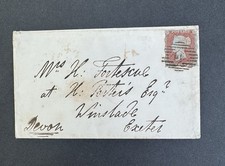 Mrs H. Fortescue
at H. Porter's Esqr
Winslade
Devon Exeter